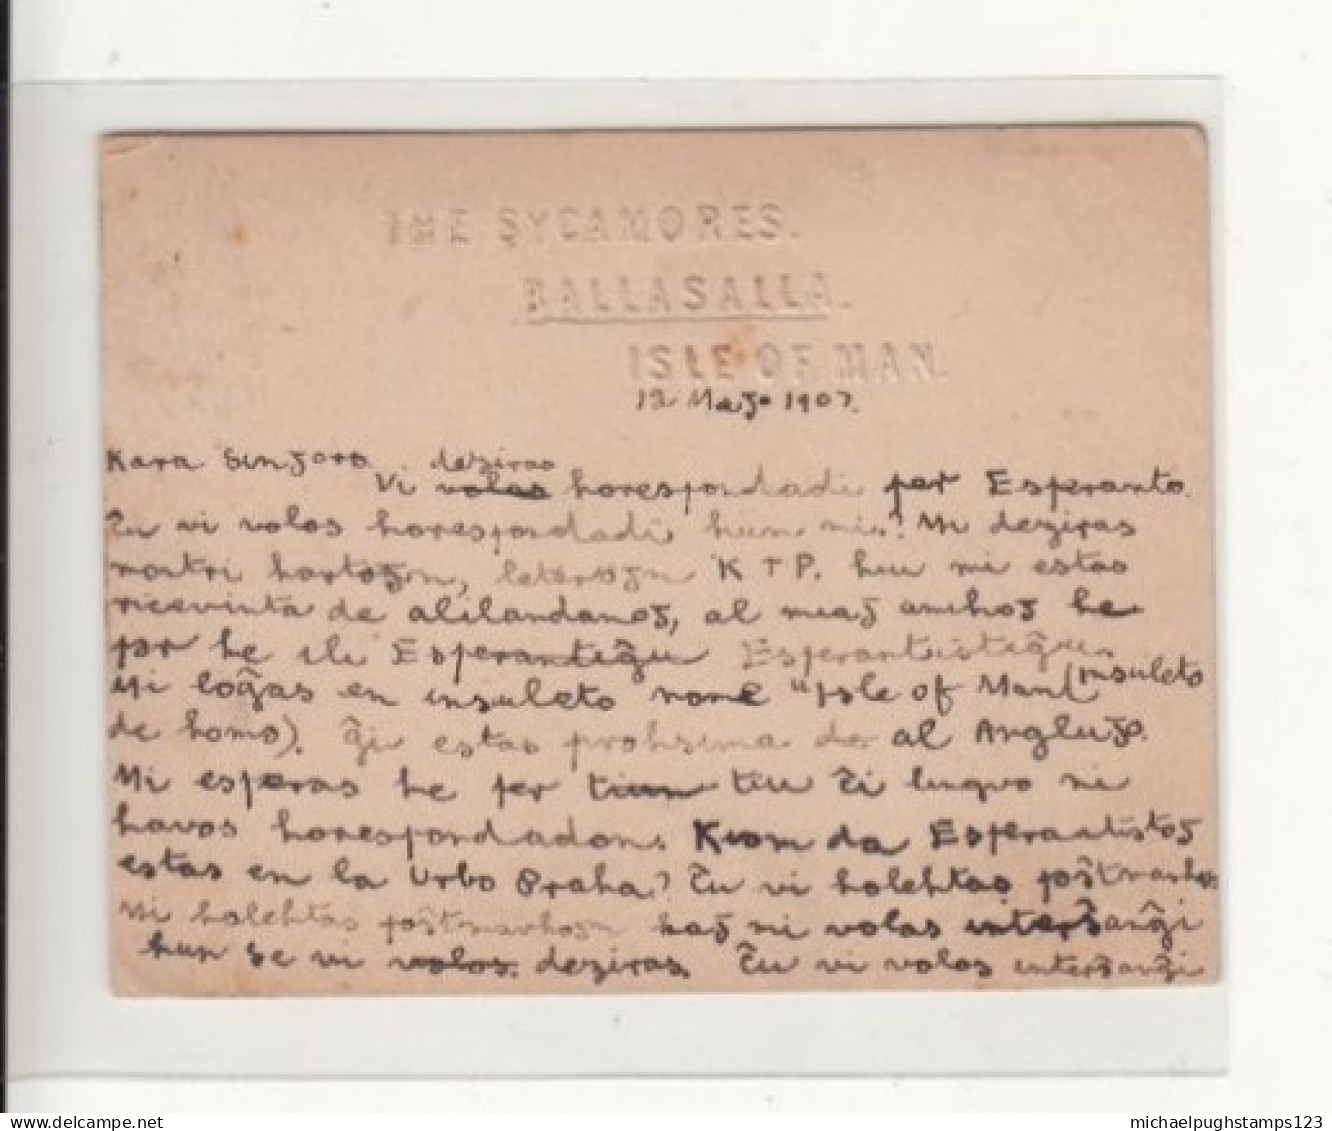 THE SYCAMORES.
BALLASALLA.
ISLE OF MAN.
12 Majo 1907.
Kara Sinjoro
Vi volas deziras korespondadi per Esperanto.
Ĉu vi volos korespondadi kun mi? Mi deziras
kartojn, leterojn K T P. kiu mi estas
de alilandanoj, al miaj amikoj ke
por ke ili Esperantiĝu Esperantistiĝu.
Mi loĝas en insuleto nome "Isle of Man (insuleto
de homo). Ĝi estas proksima de al Anglujo.
Mi esperas ke per tium tiu ĉi linguo ni
havos korespondadon. Kiom da Esperantistoj
estas en la Urbo Praha? Ĉu vi kolektas poŝtmarkojn
Mi kolektas poŝtmarkojn kaj mi volas interŝanĝi
kun se vi volos. deziras. Ĉu vi volos interŝanĝi
michaelpughstamps123